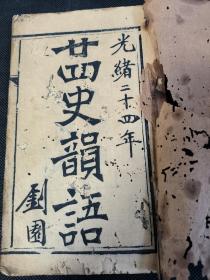 光緒二十四年
廿四史韻語
劉園